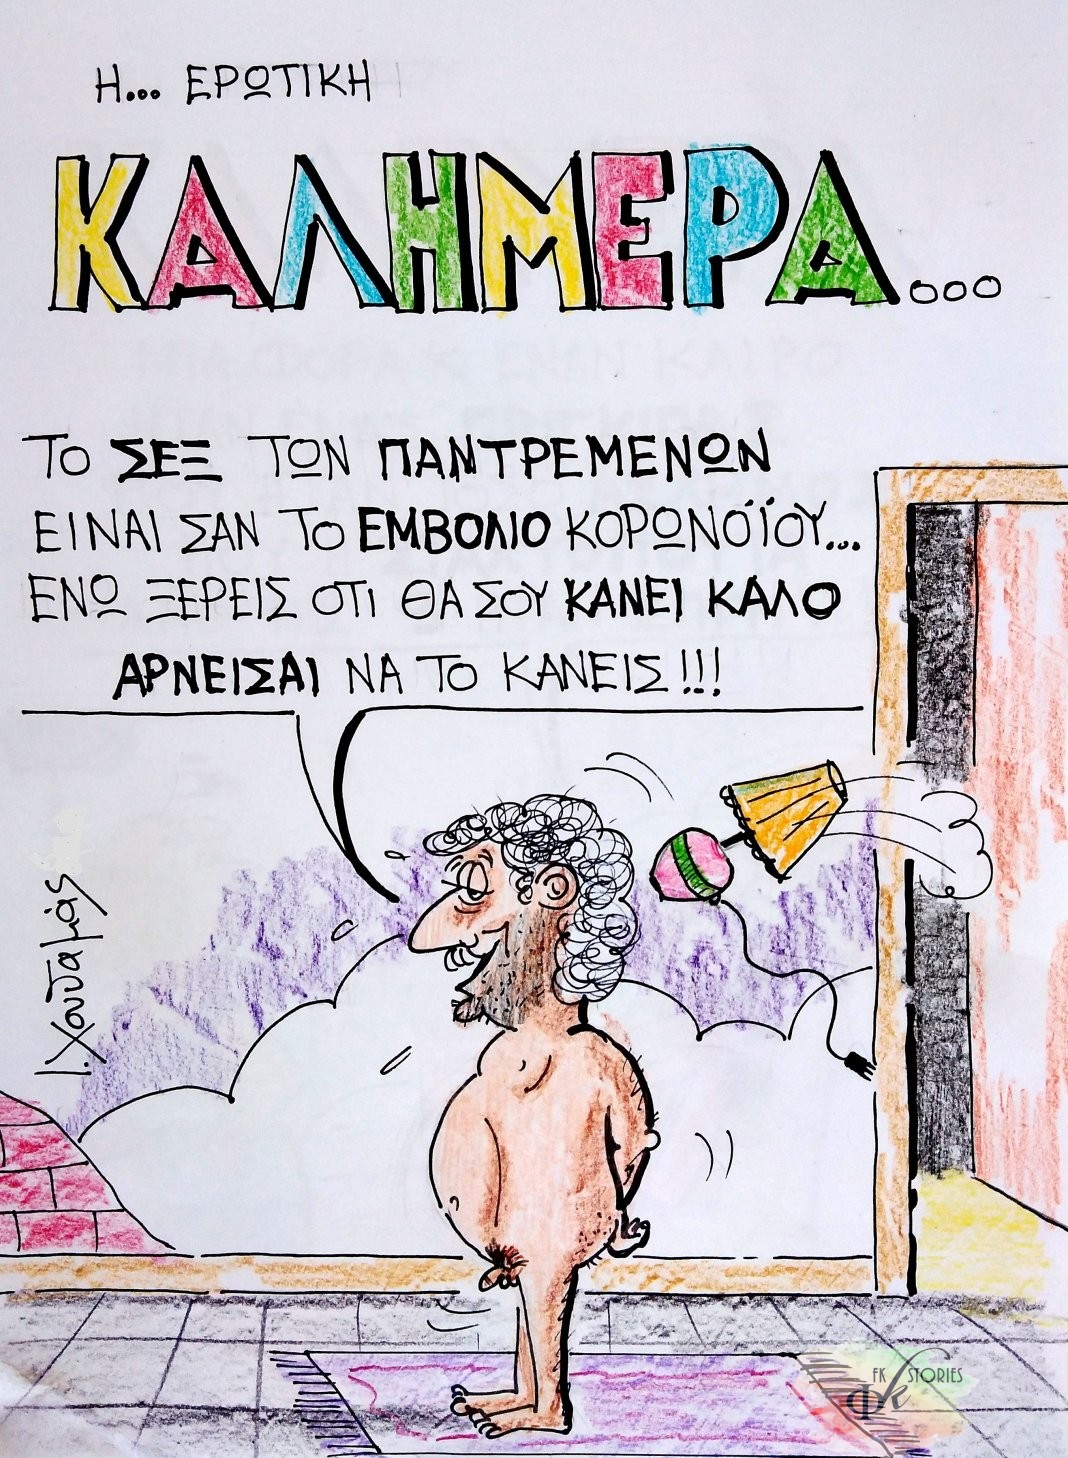 Η... ΕΡΩΤΙΚΗ
ΚΑΛΗΜΕΡΑ...
ΤΟ ΣΕΞ ΤΩΝ ΠΑΝΤΡΕΜΕΝΩΝ
ΕΙΝΑΙ ΣΑΝ ΤΟ ΕΜΒΟΛΙΟ ΚΟΡΩΝΟΪΟΥ...
ΕΝΩ ΞΕΡΕΙΣ ΟΤΙ ΘΑ ΣΟΥ ΚΑΝΕΙ ΚΑΛΟ
ΑΡΝΕΙΣΑΙ ΝΑ ΤΟ ΚΑΝΕΙΣ!!!
Ι. Χουταμιάς
FK STORIES
Φk